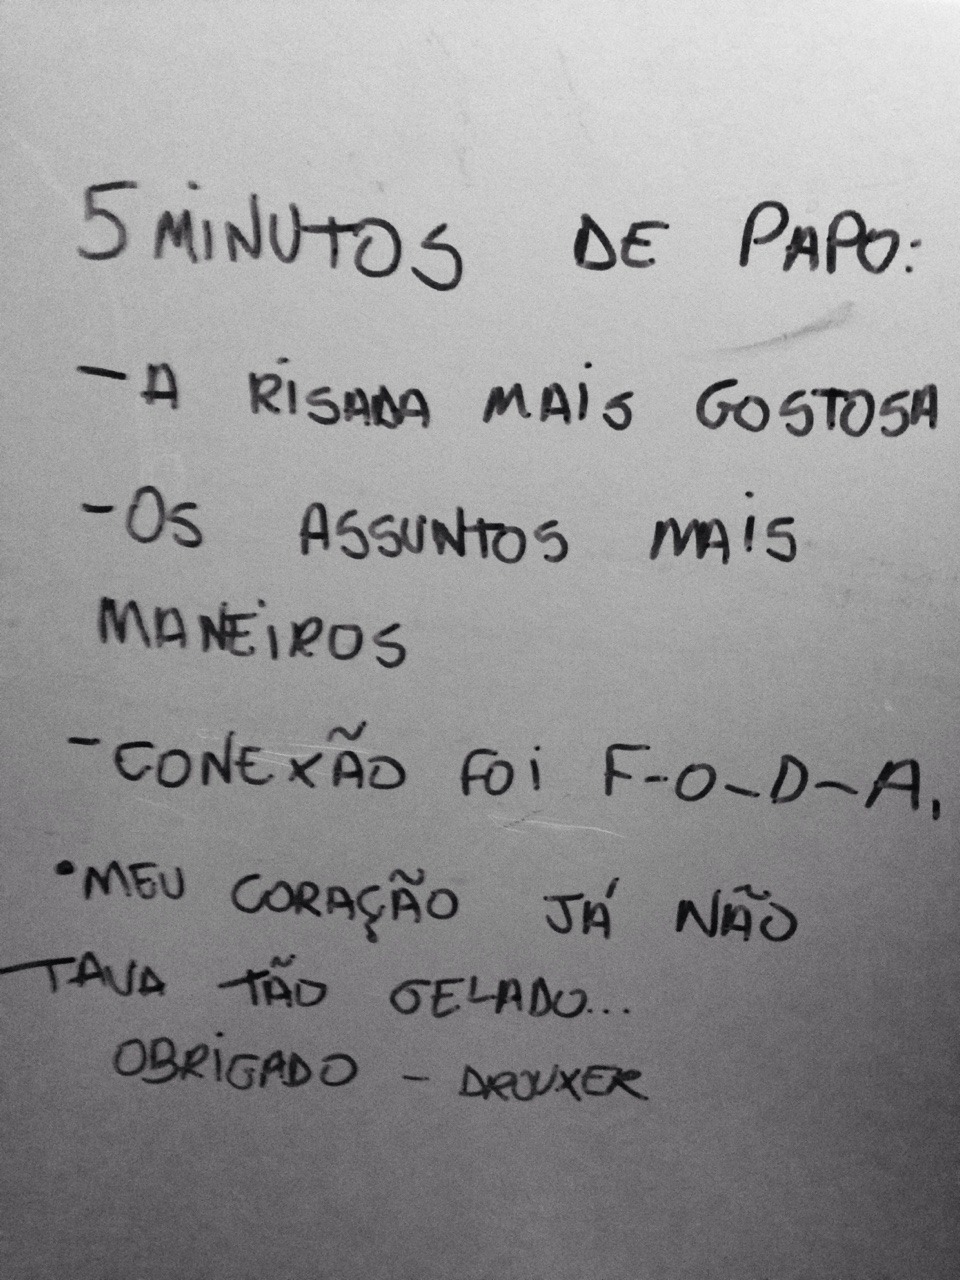 5 MINUTOS DE PAPO:
- A RISADA MAIS GOSTOSA
- OS ASSUNTOS MAIS
MANEIROS
- CONEXÃO FOI F-O-D-A,
• MEU CORAÇÃO JÁ NÃO
TAVA TÃO GELADO...
OBRIGADO - DROUXER